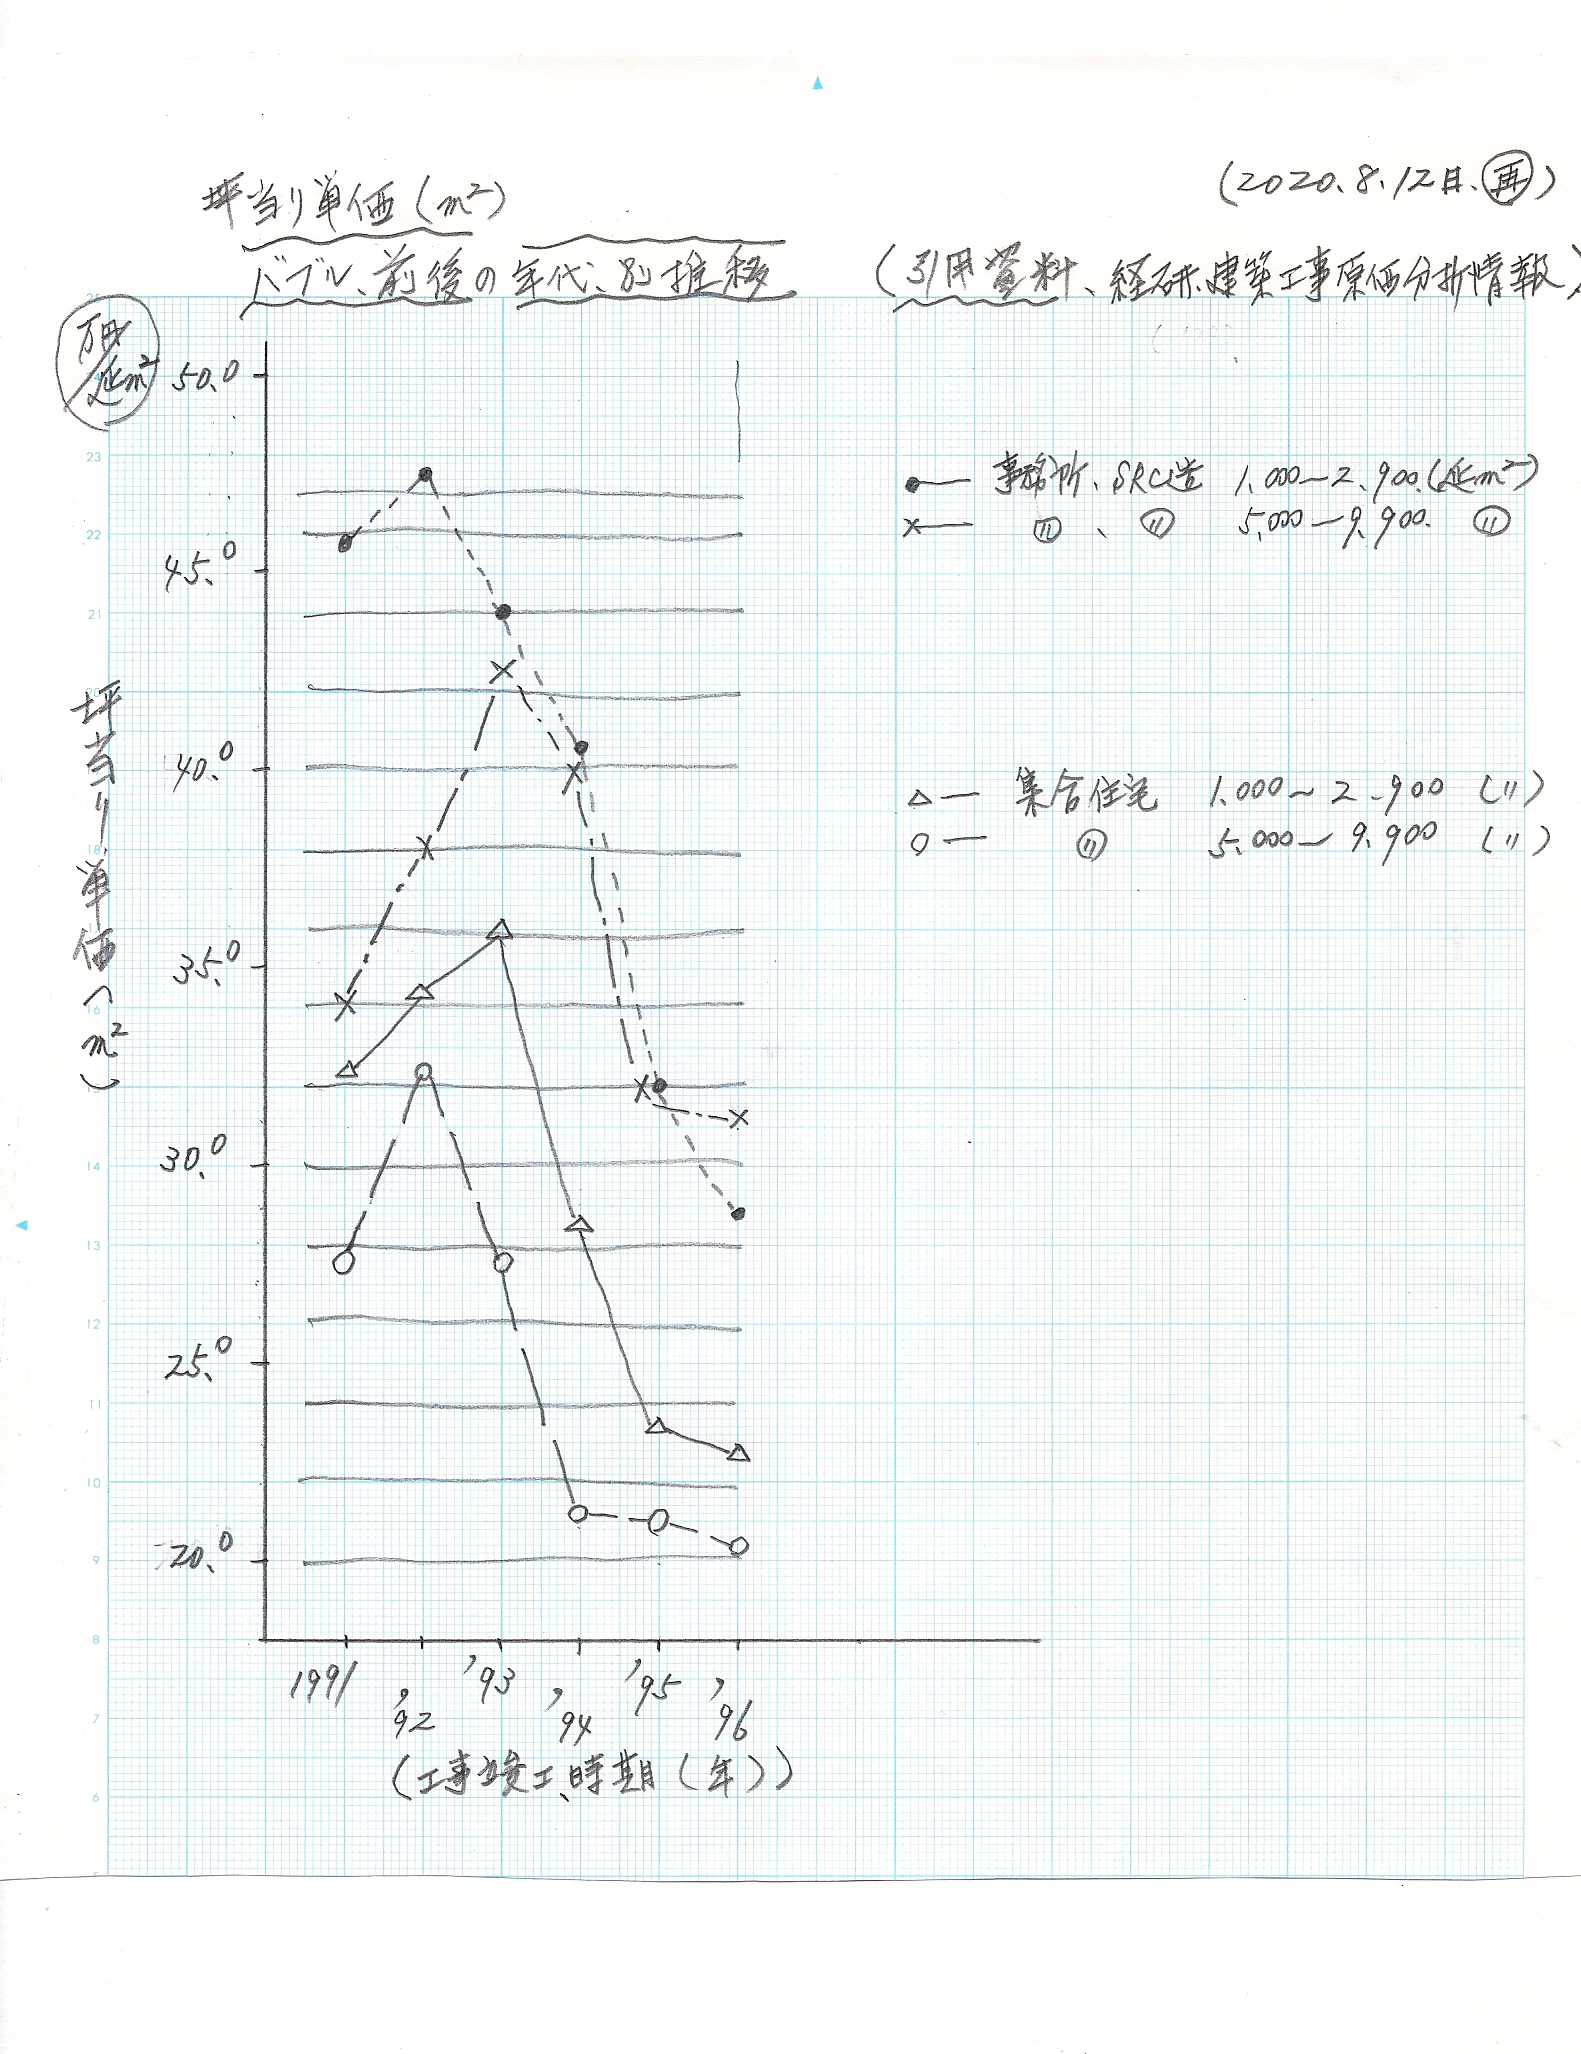 (2020.8.12日.再)
坪当り単価(m²)
バブル、前後の年代、別推移
(引用資料、経研.建築工事原価分析情報)
万円/延m²
50.0
45.0
40.0
35.0
30.0
25.0
20.0
坪当り単価(m²)
●— 事務所、SRC造 1.000~2.900.(延m²)
×— 〃、〃 5.000~9.900. 〃
△— 集合住宅 1.000~2.900 (〃)
○— 〃 5.000~9.900 (〃)
25
23
22
21
20
18
16
15
14
13
12
11
10
9
8
7
6
5
1991 '92 '93 '94 '95 '96
(工事竣工、時期(年))